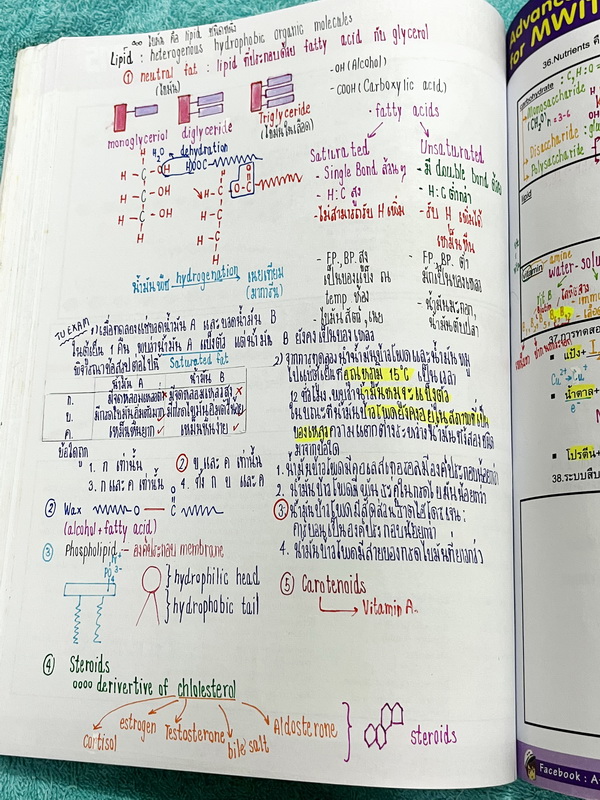 lipid
Lipid : heterogenous hydrophobic organic molecules
① neutral fat : lipid ที่ประกอบด้วย fatty acid กับ glycerol
(ไขมัน)
-OH (Alcohol)
-COOH (Carboxylic acid)
monoglyceriol
diglyceride
Triglyceride
(ไขมันในเลือด)
- fatty acids
H2O dehydration
HOOC
Saturated
- Single Bond ล้วนๆ
- H:C สูง
- ไม่สามารถรับ H เพิ่ม
- FP., BP. สูง
เป็นของแข็ง ณ
temp ห้อง
- ไขมันสัตว์ เนย
Unsaturated
- มี double bond
- H:C ต่ำกว่า
- รับ H เพิ่มได้
เหม็นหืน
- FP., BP. ต่ำ
มักเป็นของเหลว
- น้ำมันมะกอก,
น้ำมันตับปลา
น้ำมันพืช hydrogenation เนยเทียม
(มาการีน)
TU EXAM 1) เมื่อทดลองแช่ขวดน้ำมัน A และขวดน้ำมัน B
ในตู้เย็น 1 คืน พบว่าน้ำมัน A แข็งตัว แต่น้ำมัน B ยังคงเป็นของเหลว
พิจารณาข้อสรุปต่อไปนี้ Saturated fat
น้ำมัน A น้ำมัน B
ก. มีจุดหลอมเหลวต่ำ มีจุดหลอมเหลวสูง
ข. มีกรดไขมันอิ่มตัวมาก มีกรดไขมันอิ่มตัวน้อย
ค. เหม็นหืนยาก เหม็นหืนง่าย
ข้อใดถูก
1. ก เท่านั้น ② ข และ ค เท่านั้น
3. ก และ ค เท่านั้น 4. ทั้ง ก ข และ ค
2) จากการทดลองนำน้ำมันข้าวโพดและน้ำมันหมู
ไปแช่เย็นที่อุณหภูมิ 15°C เป็นเวลา
12 ชั่วโมง พบว่าน้ำมันหมูจะแข็งตัว
ในขณะที่น้ำมันข้าวโพดยังคงอยู่ในสภาพที่เป็น
ของเหลว ความแตกต่างระหว่างน้ำมันทั้งสองชนิด
มาจากข้อใด
1. น้ำมันข้าวโพดมีคอเลสเตอรอลเป็นองค์ประกอบน้อยกว่า
2. น้ำมันข้าวโพดมีพันธะคู่ในกรดไขมันน้อยกว่า
③ น้ำมันข้าวโพดมีสัดส่วนของไฮโดรเจน :
คาร์บอนเป็นองค์ประกอบน้อยกว่า
4. น้ำมันข้าวโพดมีสายของกรดไขมันที่ยาวกว่า
② Wax
(alcohol + fatty acid)
③ Phospholipid - องค์ประกอบ membrane
hydrophilic head
hydrophobic tail
④ Steroids
derivertive of chlolesterol
Cortisol
estrogen
Testosterone
bile salt
Aldosterone
steroids
⑤ Carotenoids
Vitamin A.
Advanc
for MWIT
36.Nutrients คื
carbohydrate : C,H:O =
Monosaccharide
Disaccharide : glu
Polysaccharide
lipid
vitamin amine
water-solu
37.การทดสอ
แป้ง +
Cu2+ Cu+
น้ำตาล+
โปรตีน+
38.ระบบสืบ
Facebook : A